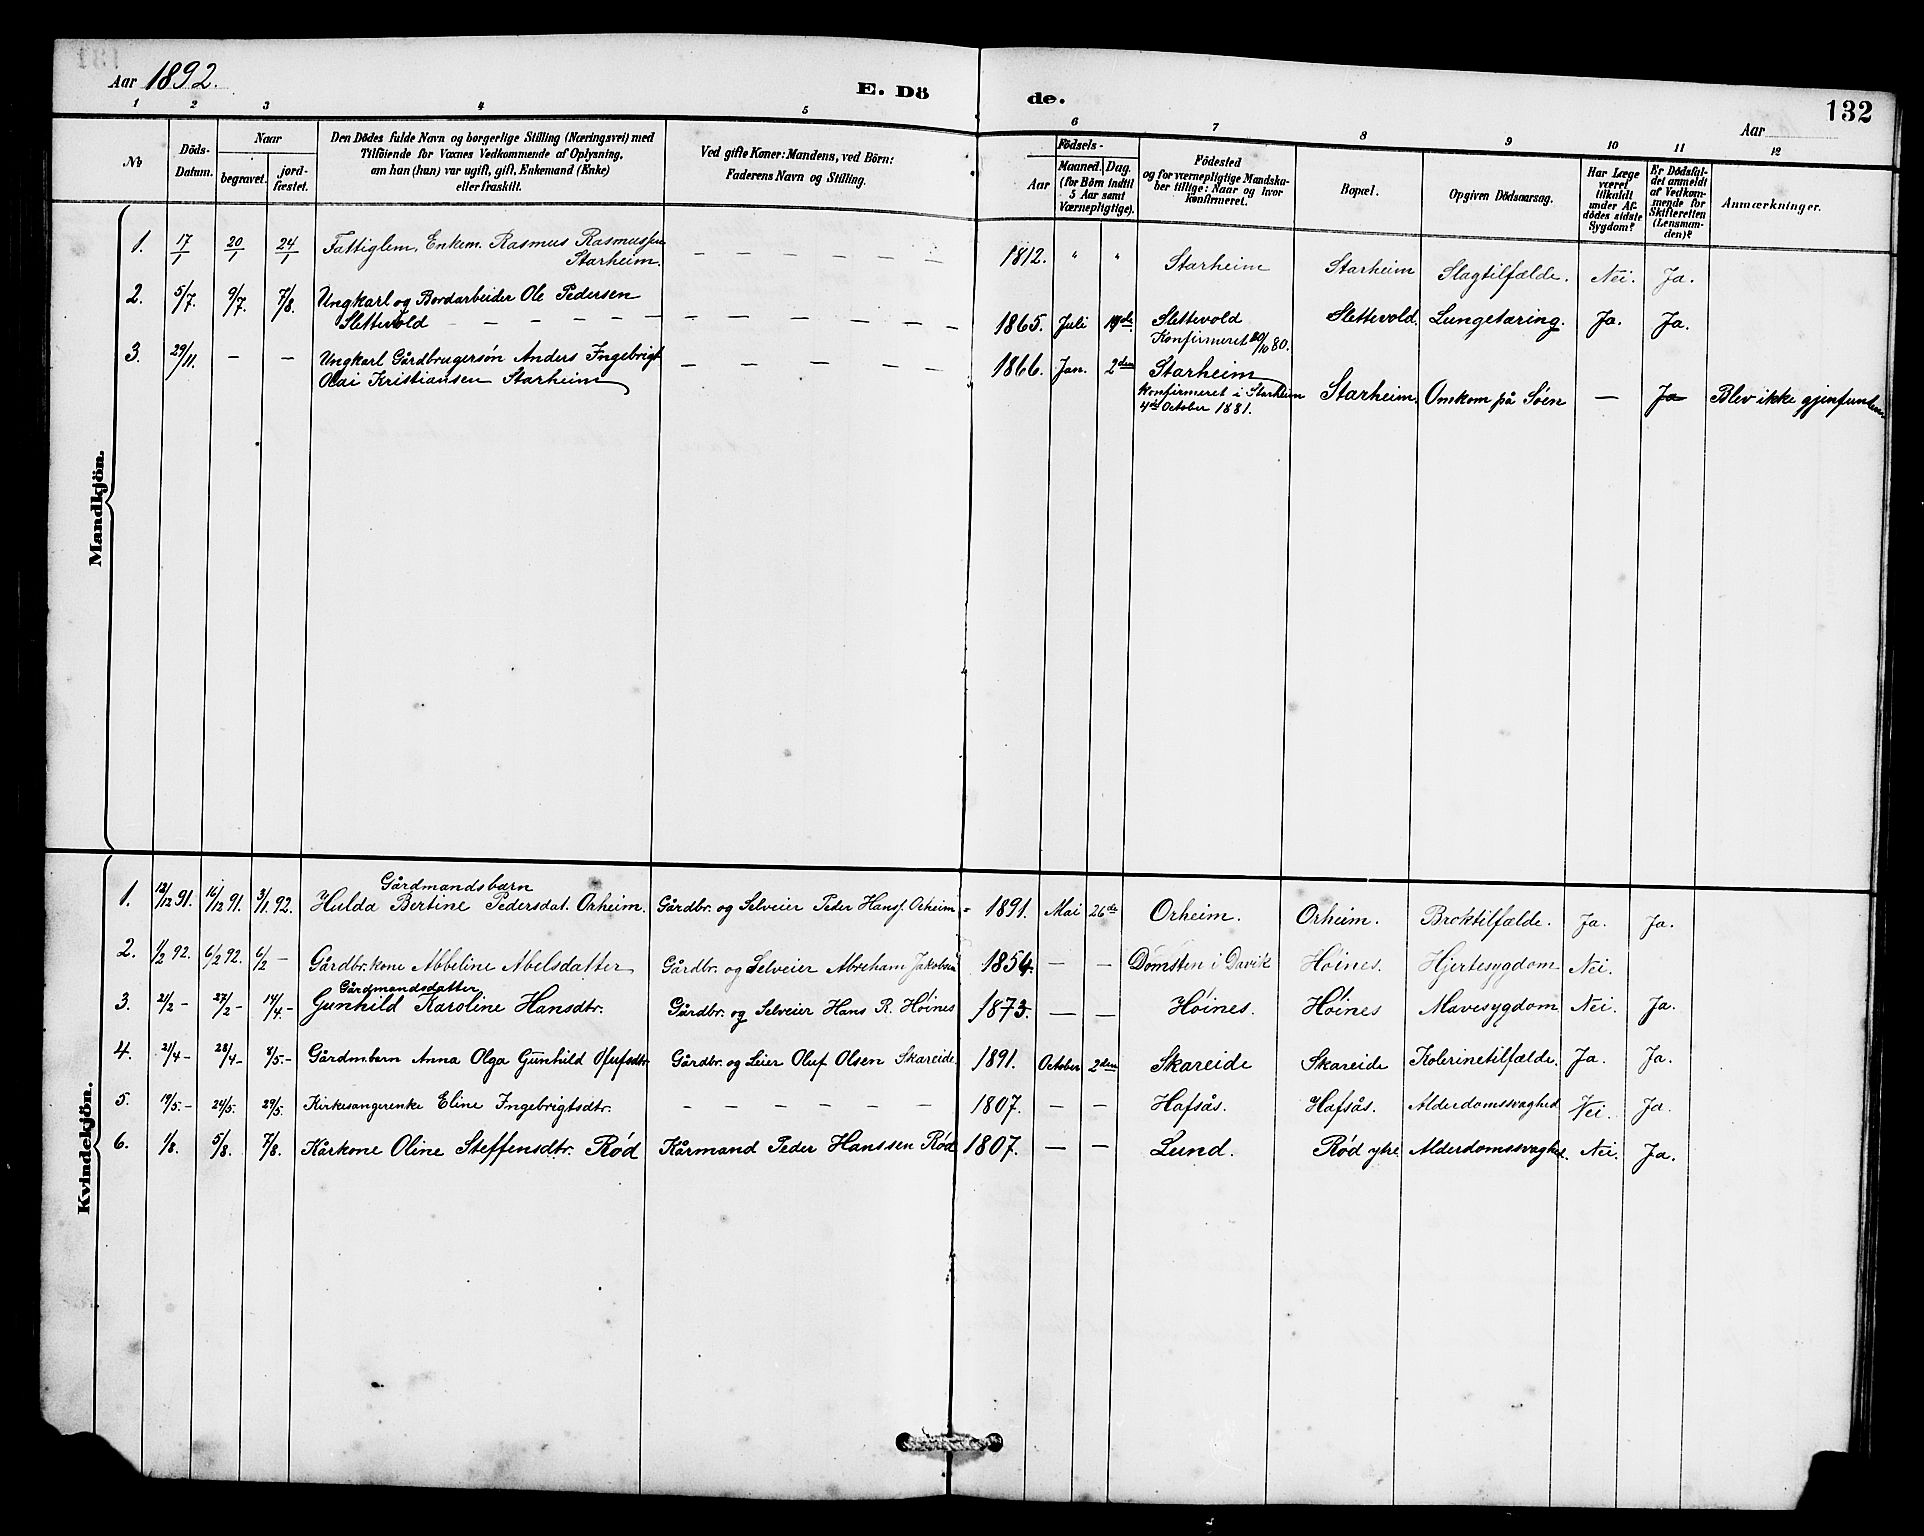 Aar 1892.
E. Dö
de.
132
Aar
1 2 3 4 5 6 7 8 9 10 11 12
No
Döds-Datum.
Naar
begravet.
jord-fæstet.
Den Dödes fulde Navn og borgerlige Stilling (Næringsvei) med
Tilföiende for Voxnes Vedkommende af Oplysning,
om han (hun) var ugift, gift, Enkemand (Enke)
eller fraskilt.
Ved gifte Koner: Mandens, ved Börn:
Faderens Navn og Stilling.
Födsels-
Aar
Maaned. Dag.
(for Börn indtil
5 Aar samt
Værnepligtige).
Födested
og for værnepligtige Mandska-
ber tillige: Naar og hvor
konfirmeret.
Bopæl.
Opgiven Dödsaarsag.
Har Læge
været
tilkaldt
under Af-
dödes sidste
Sygdom?
Er Dödsfal-
det anmeldt
af Vedkom-
mende for
Skifteretten
(Lensman-
den)?
Anmærkninger.
Mandkjön.
1. 17/1 20/1 24/1 Fattiglem, Enkem. Rasmus Rasmussen
Starheim. — — — — — — — 1812. " " Starheim Starheim Slagtilfælde. Nei. Ja.
2. 5/7. 9/7. 7/8. Ungkarl og Bordarbeider Ole Pedersen
Slettevold — — — — — — — 1865. Juli 19de. Slettevold Slettevold. Lungetæring. Ja. Ja.
Konfirmeret /10 80.
3. 29/11. — — Ungkarl Gårdbrugersøn Anders Ingebrigt
Olai Kristiansen Starheim — — — — — 1866. Jan. 2den Starheim
konfirmeret i Starheim
4de October 1881.
Starheim. Omkom på Söen — Ja Blev ikke gjenfunden.
Kvindekjön.
1. 12/12 91. 16/12 91. 3/1. 92. Gårdmandsbarn
Hulda Bertine Pedersdat. Orheim. Gårdbr. og Selveier Peder Hansf. Orheim 1891. Mai 26de Orheim. Orheim. Broktilfælde. Ja. Ja.
2. 1/2 92. 6/2 92. 6/2 — Gårdbr.kone Abbeline Abelsdatter Gårdbr. og Selveier Abreham Jakobsen 1854. — — Domsten i Davik Höines. Hjertesygdom Nei.
3. 21/2 – 27/2 – 14/4. – Gårdmandsdatter
Gunhild Karoline Hansdtr. Gårdbr. og Selveier Hans R. Höines 1873. — — Höines. Höines Mavesygdom Nei. Ja.
4. 21/4 – 28/4 – 8/5. – Gårdm.barn Anna Olga Gunhild Olufsdtr. Gårdbr. og Leier Oluf Olsen Skareide 1891. October 2den Skareide Skareide Kolerinetilfælde. Ja. Ja.
5. 19/5. – 24/5. 29/5. Kirkesangerenke Eline Ingebrigtsdtr. — — — — — — 1807. — — Hafsås. Hafsås. Alderdomssvaghed Nei. Ja.
6. 1/8. 5/8. 7/8. Kårkone Oline Steffensdtr. Rød Kårmand Peder Hanssen Rød 1807. — — Lund. Rød ytre Alderdomssvaghed. Nei. Ja.